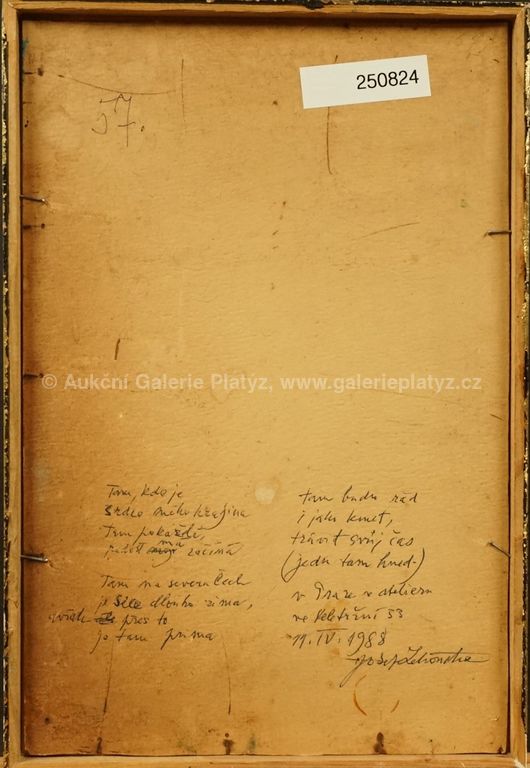 250824
57.
© Aukční Galerie Platýz, www.galerieplatyz.cz
Tam, kde je
srdce mého kraje
Tam pokaždé,
má začíná
Tam na severu Čech
je sice dlouhá zima,
přes to
je tam prima
tam budu rád
i jako kmet,
trávit svůj čas
(jedu tam hned)
v Praze v atelieru
ve Veletržní 53
11. IV. 1988
Josef